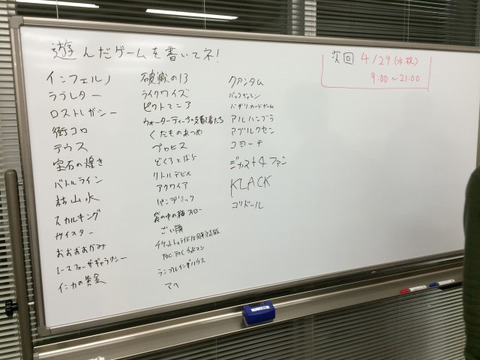 遊んだゲームを書いてネ!
次回 4/29(水祝)
9:00~21:00
インフェルノ
ラブレター
ロストレガシー
街コロ
テウス
宝石の煌き
バトルライン
枯山水
スカルキング
ケイスター
おおおおかみ
レースフォーザギャラクシー
インカの黄金
破滅の13
ライクワイズ
ピクトマニア
ウォーターディープの支配者たち
くだものあつめ
プロヒス
どくろとばら
リトルデビル
アクワイア
パンデミック
袋の中の猫フィロー
ごい箱
テべ
クアンタム
バザリカードゲーム
アルハンブラ
アグルクセン
コヨーテ
ジャスト4ファン
KLACK
コリドール